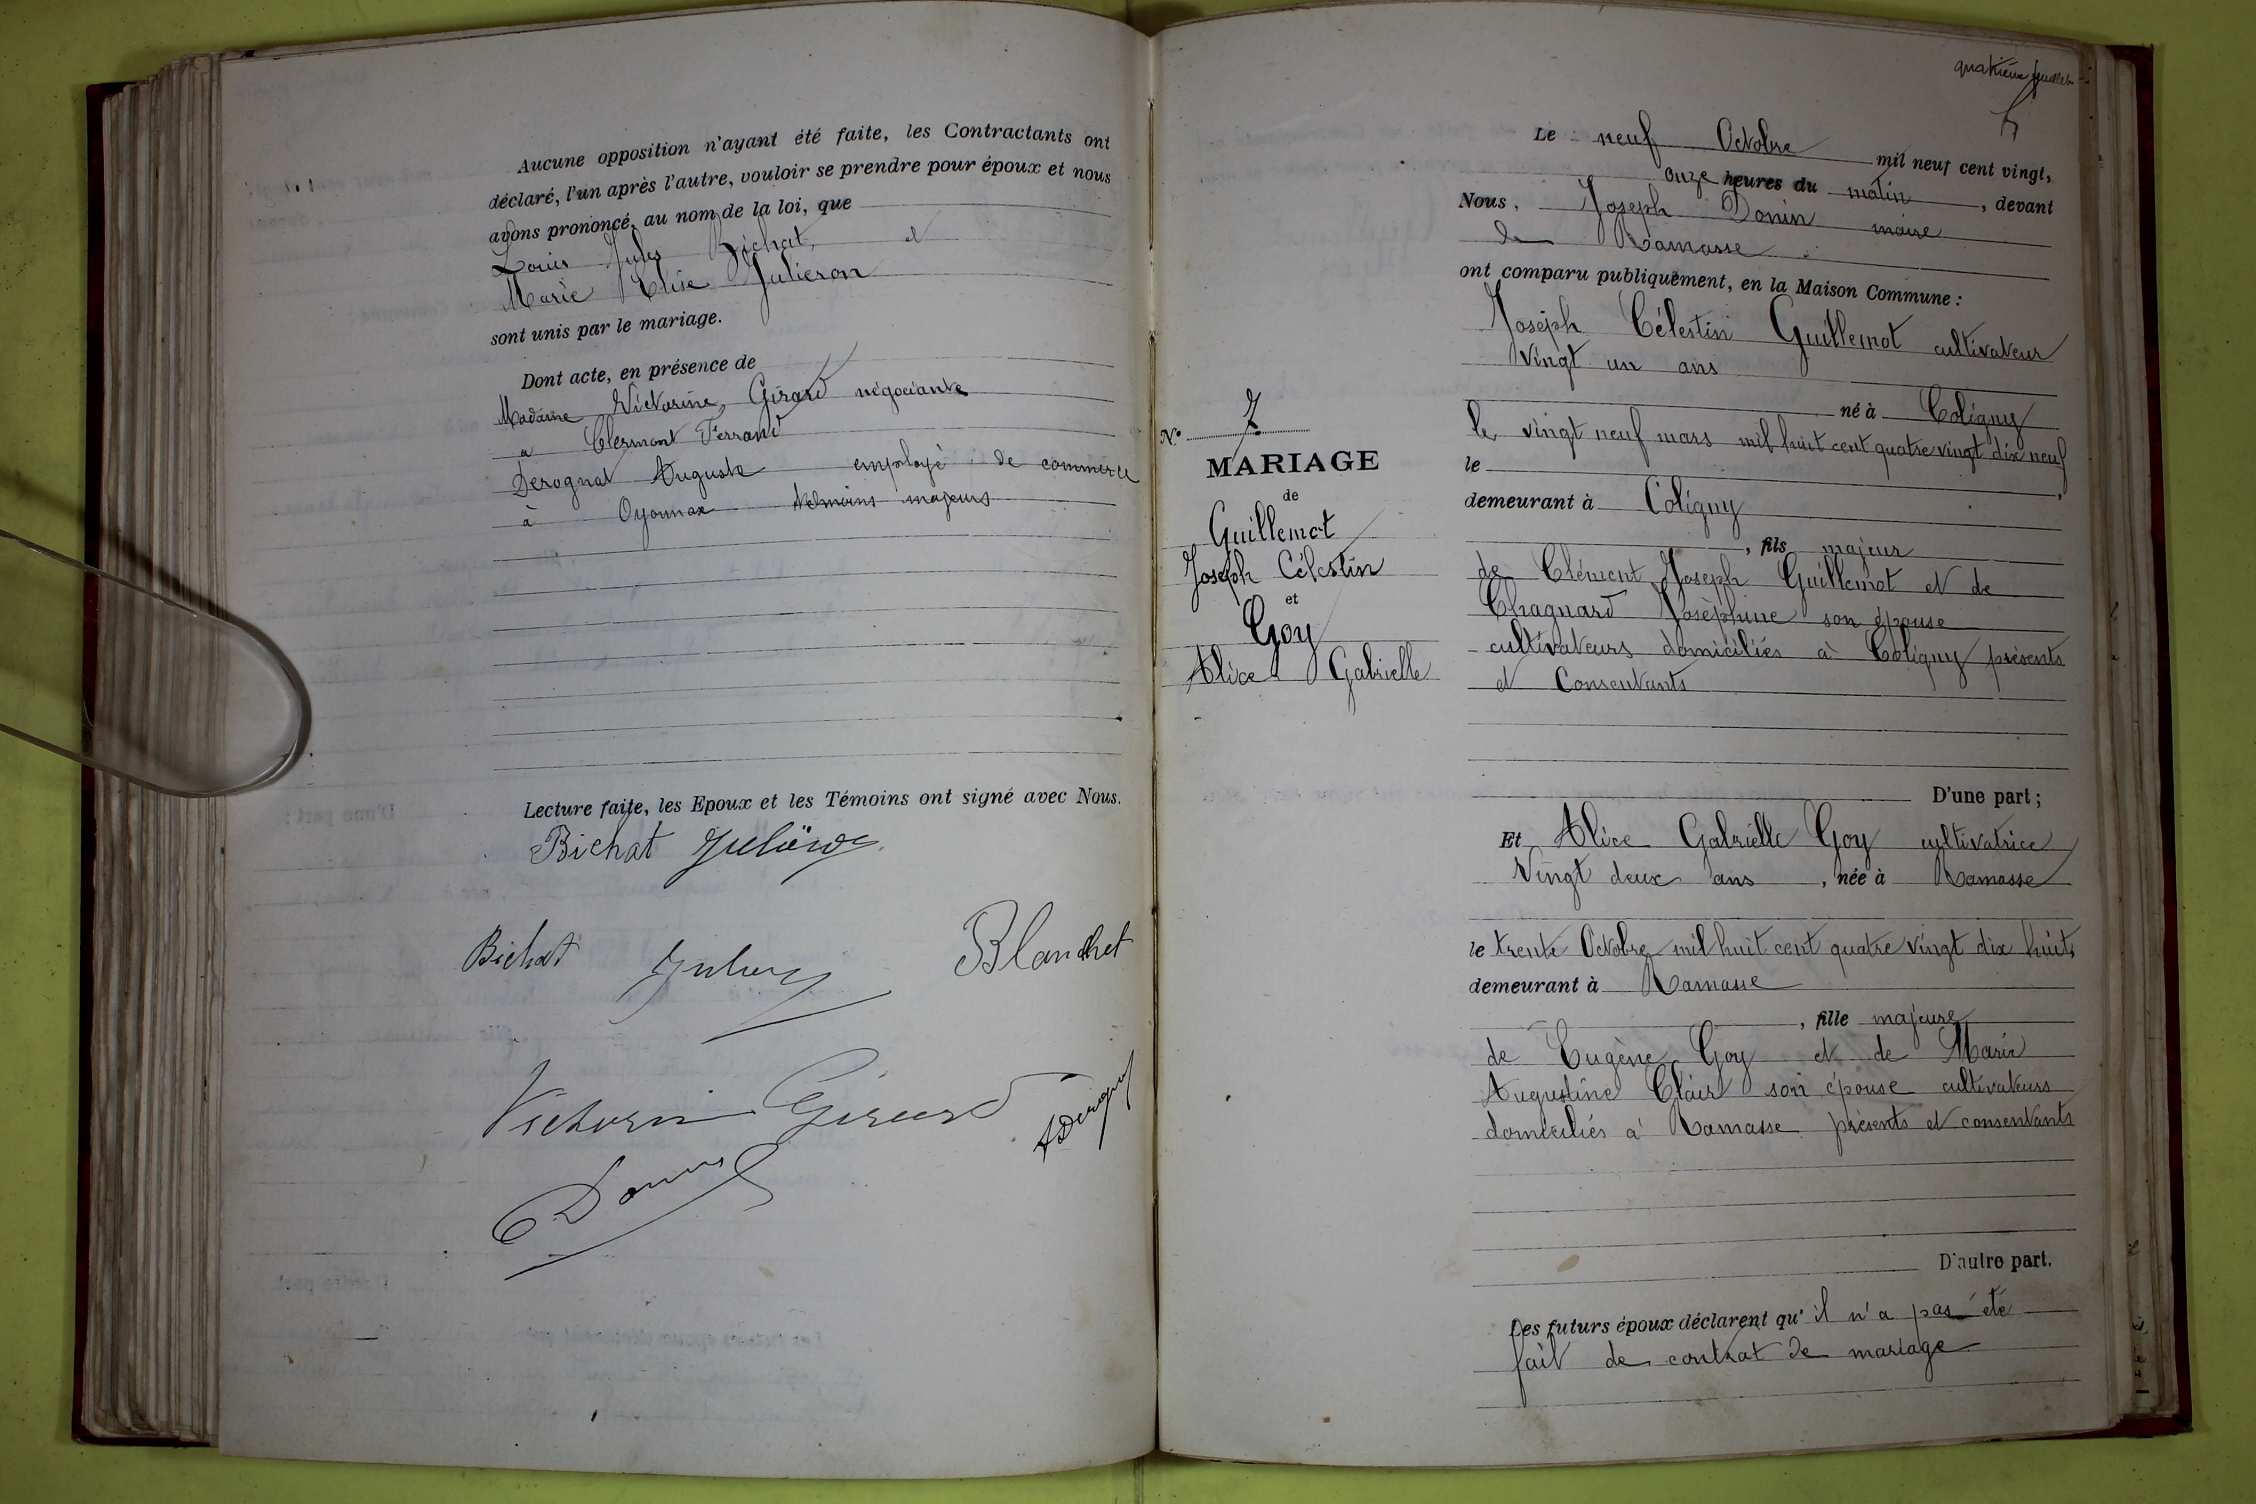 Aucune opposition n'ayant été faite, les Contractants ont
déclaré, l'un après l'autre, vouloir se prendre pour époux et nous
avons prononcé, au nom de la loi, que
Louis Jules Bichat, et
Marie Elise Julieron
sont unis par le mariage.
Dont acte, en présence de
Madame Victorine Girard négociante
à Clermont Ferrand
Derognat Auguste employé de commerce
à Oyonnax témoins majeurs
Lecture faite, les Epoux et les Témoins ont signé avec Nous.
Bichat
Bichat Blanchet
Girard
Donin
quatrième feuillet
Le neuf Octobre mil neuf cent vingt,
onze heures du matin, devant
Nous, Joseph Donin maire
de Ramasse
ont comparu publiquement, en la Maison Commune :
Joseph Célestin Guillemot cultivateur
vingt un ans
né à Coligny
le vingt neuf mars mil huit cent quatre vingt dix neuf
le
demeurant à Coligny
, fils majeur
de Clément Joseph Guillemot et de
Chagnard Josèphine son épouse
cultivateurs domiciliés à Coligny présents
et Consentants
D'une part ;
N° 7
MARIAGE
de
Guillemot
Joseph Célestin
et
Goy
Alice Gabrielle
Et Alice Gabrielle Goy cultivatrice
Vingt deux ans, née à Ramasse
le trente Octobre mil huit cent quatre vingt dix huit,
demeurant à Ramasse
, fille majeure
de Eugène Goy et de Marie
Augustine Clair son épouse cultivateurs
domiciliés à Ramasse présents et consentants
D'autre part.
Les futurs époux déclarent qu'il n'a pas été
fait de contrat de mariage